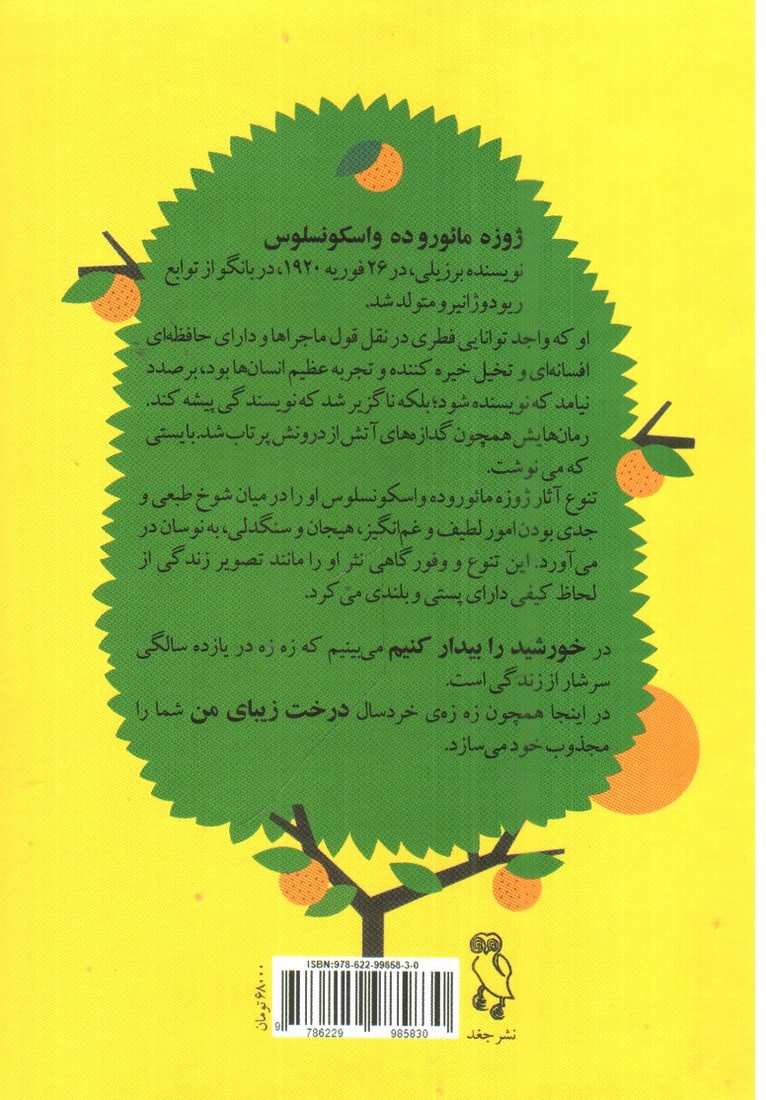 ژوزه مائورو ده واسکونسلوس
نویسنده برزیلی، در ۲۶ فوریه ۱۹۲۰، در بانگو از توابع
ریودوژانیرو متولد شد.
او که واجد توانایی فطری در نقل قول ماجراها و دارای حافظه‌ای
افسانه‌ای و تخیل خیره کننده و تجربه عظیم انسان‌ها بود، بر صدد
نیامد که نویسنده شود؛ بلکه ناگزیر شد که نویسندگی پیشه کند.
رمان‌هایش همچون گدازه‌های آتش از درونش پرتاب شد. بایستی
که می نوشت.
تنوع آثار ژوزه مائورو ده واسکونسلوس او را در میان شوخ طبعی و
جدی بودن امور لطیف و غم‌انگیز، هیجان و سنگدلی، به نوسان در
می‌آورد. این تنوع و وفور گاهی نثر او را مانند تصویر زندگی از
لحاظ کیفی دارای پستی و بلندی می کرد.
در خورشید را بیدار کنیم می‌بینیم که زه زه در یازده سالگی
سرشار از زندگی است.
در اینجا همچون زه زه‌ی خردسال درخت زیبای من شما را
مجذوب خود می‌سازد.
ISBN:978-622-99858-3-0
9 786229 985830
۶۸۰۰۰ تومان
نشر جغد